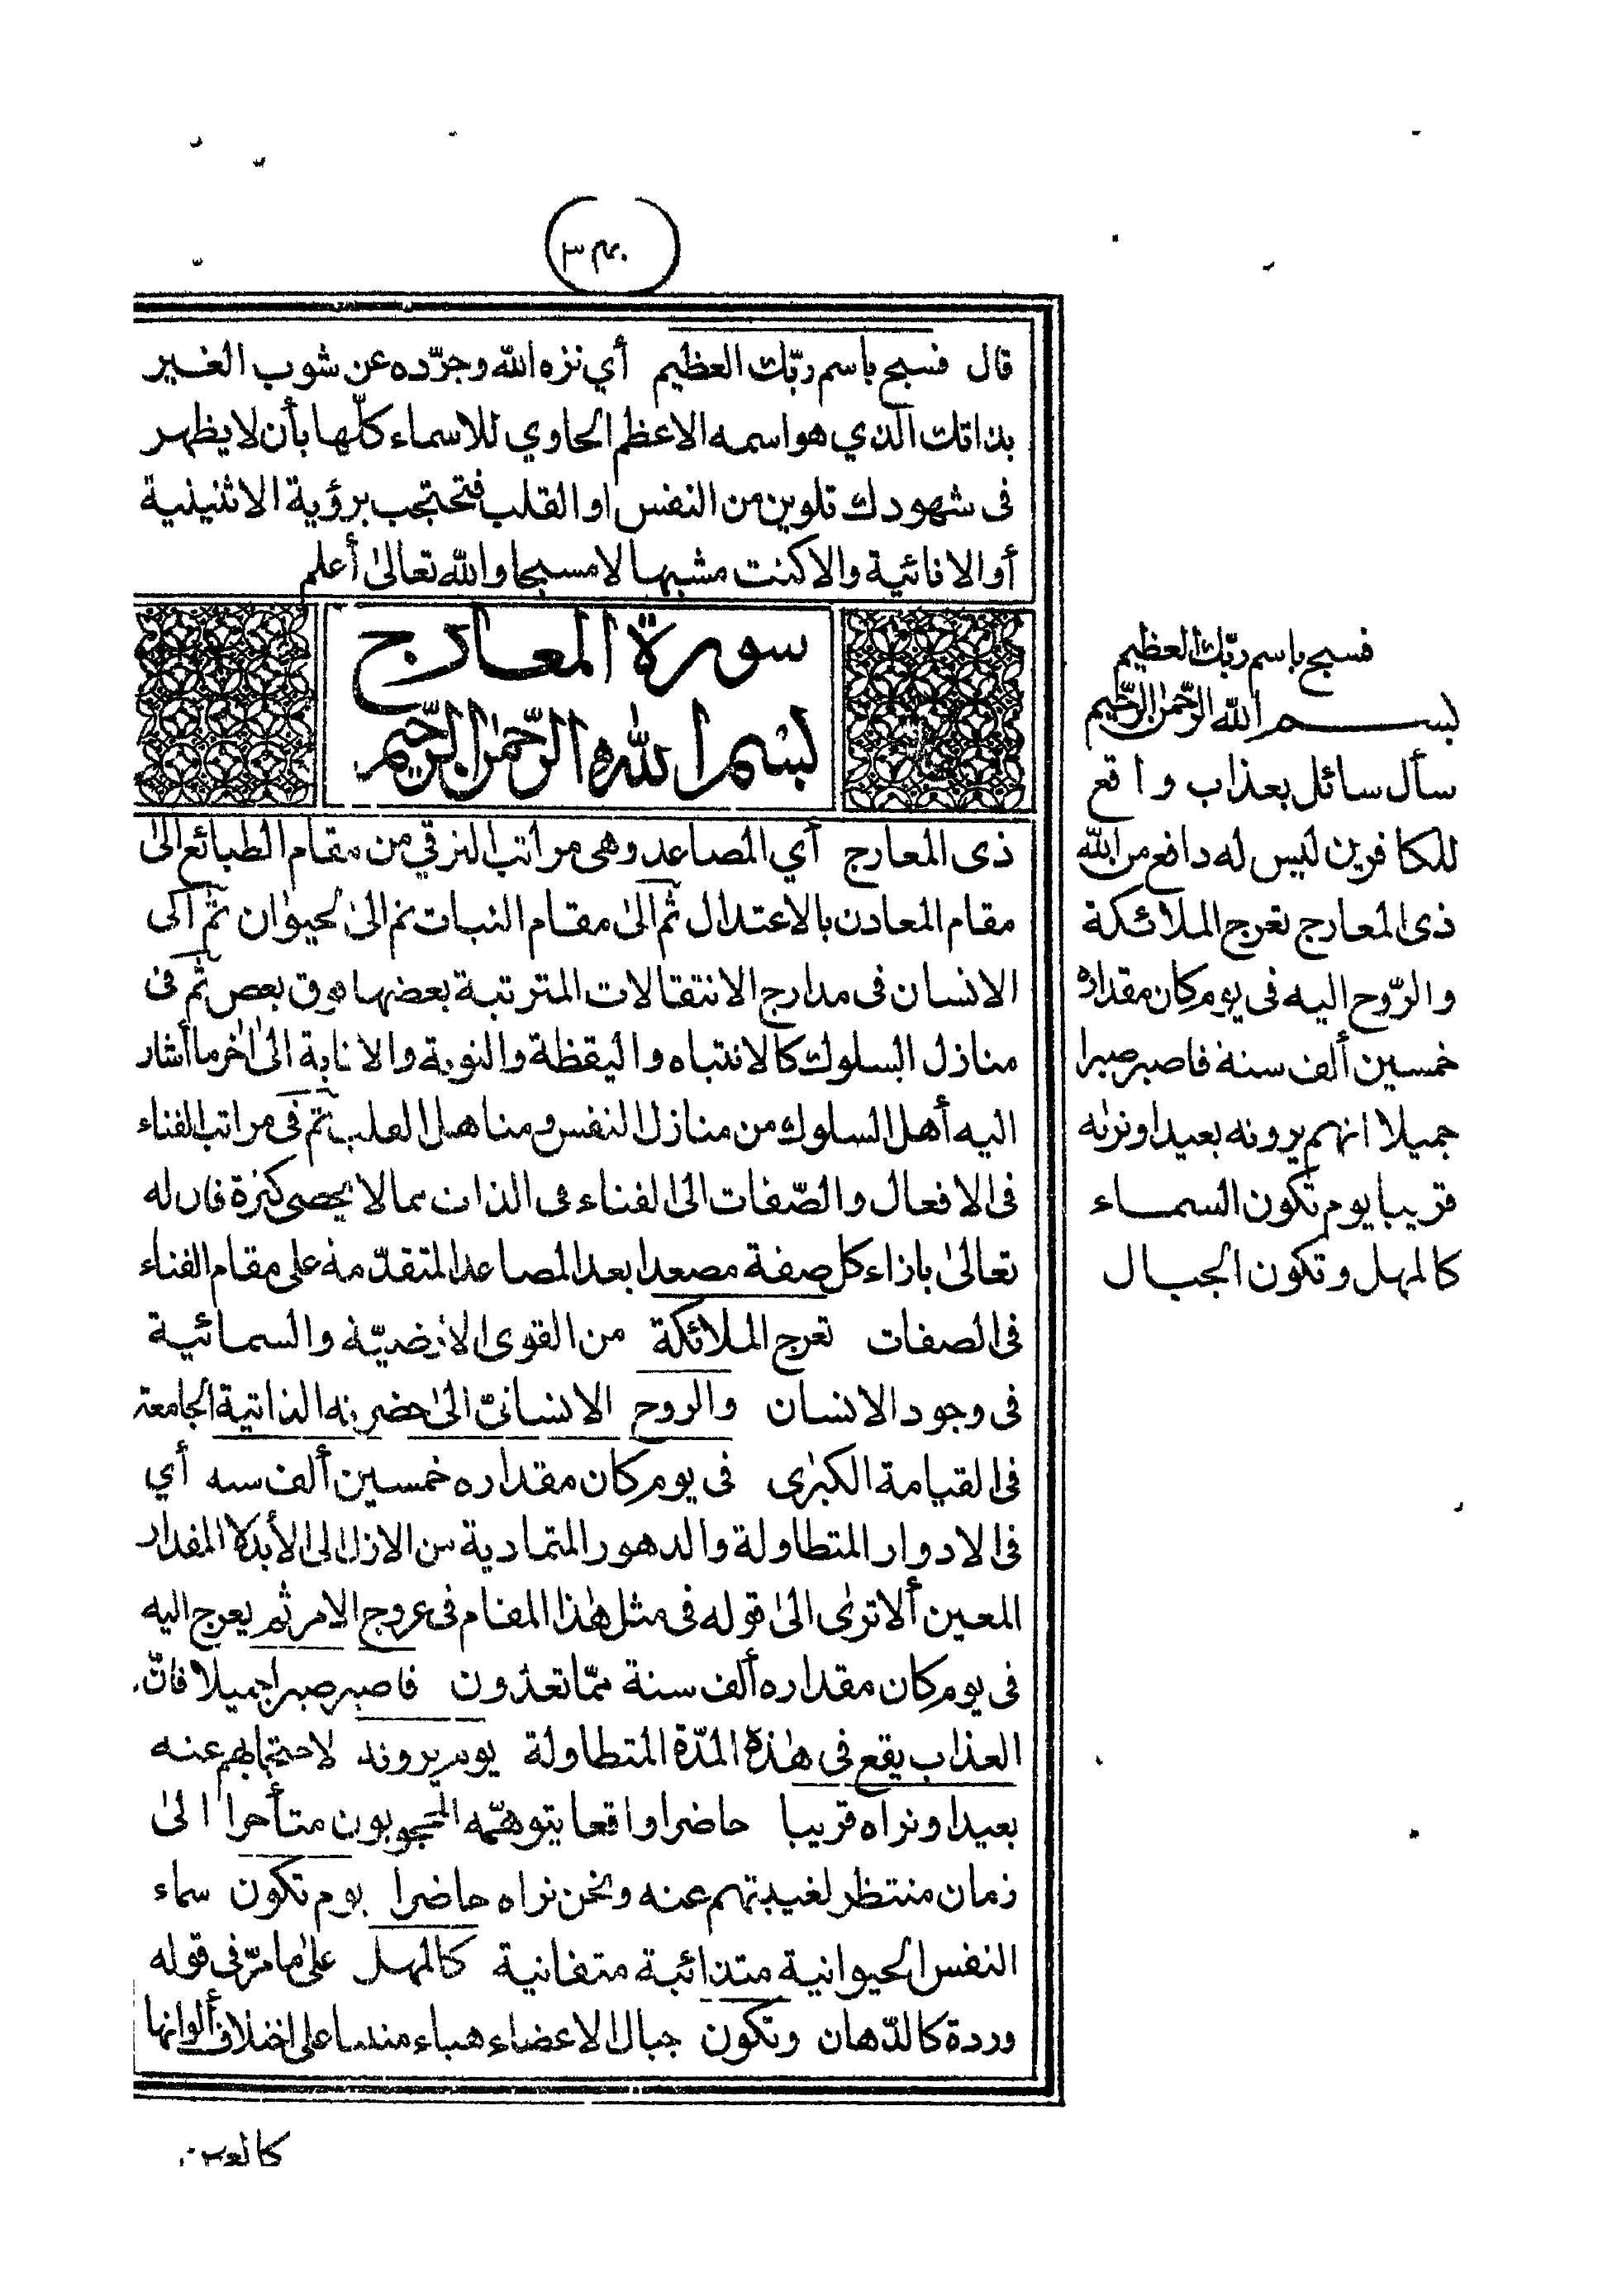 ٣٤٠
قال فسبح باسم ربّك العظيم أي نزه الله وجرّده عن شوب الغير
بذاتك الذي هو اسمه الاعظم الحاوي للاسماء كلّها بأن لا يظهر
فى شهودك تلوين من النفس او القلب فتحتجب برؤية الاثنينية
أو الانائية والا كنت مشبها لا مسبحا والله تعالىٰ أعلم
سورة المعارج
بسم الله الرّحمٰن الرّحيم
ذى المعارج أي المصاعد وهى مراتب الترقي من مقام الطبائع الىٰ
مقام المعادن بالاعتدال ثم الىٰ مقام النبات ثم الىٰ الحيوان ثم الى
الانسان فى مدارج الانتقالات المترتبة بعضها فوق بعض ثم فى
منازل السلوك كالانتباه واليقظة والتوبة والانابة الىٰ اٰخر ما أشار
اليه أهل السلوك من منازل النفس ومناهل القلب ثم فى مراتب الفناء
فى الافعال والصّفات الى الفناء فى الذات مما لا يحصى كثرة فان له
تعالىٰ بازاء كل صفة مصعدا بعد المصاعد المتقدّمة على مقام الفناء
فى الصفات تعرج الملائكة من القوى الارضيّة والسمائية
فى وجود الانسان والروح الانسانىّ الىٰ حضرته الذاتية الجامعة
فى القيامة الكبرٰى فى يوم كان مقداره خمسين ألف سنة أي
فى الادوار المتطاولة والدهور المتمادية من الازل الى الأبد لا المقدار
المعين ألا ترٰى الىٰ قوله فى مثل هٰذا المقام فى عروج الامر ثم يعرج اليه
فى يوم كان مقداره ألف سنة ممّا تعدّون فاصبر صبرا جميلا فانّ
العذاب يقع فى هٰذه المدّة المتطاولة يوم يرونه لاحتجابهم عنه
بعيدا ونراه قريبا حاضرا واقعا يتوهمّه المحجوبون متأخرا الىٰ
زمان منتظر لغيبتهم عنه ونحن نراه حاضرا يوم تكون سماء
النفس الحيوانية متذائبة متفانية كالمهل علىٰ ما مرّ فى قوله
وردة كالدّهان وتكون جبال الاعضاء هباء منبثا على اختلاف ألوانها
كالعهن
فسبح باسم ربّك العظيم
بسم الله الرّحمٰن الرّحيم
سأل سائل بعذاب واقع
للكافرين ليس له دافع من الله
ذى المعارج تعرج الملائكة
والرّوح اليه فى يوم كان مقداره
خمسين ألف سنة فاصبر صبرا
جميلا انهم يرونه بعيدا ونرٰىه
قريبا يوم تكون السماء
كالمهل وتكون الجبال